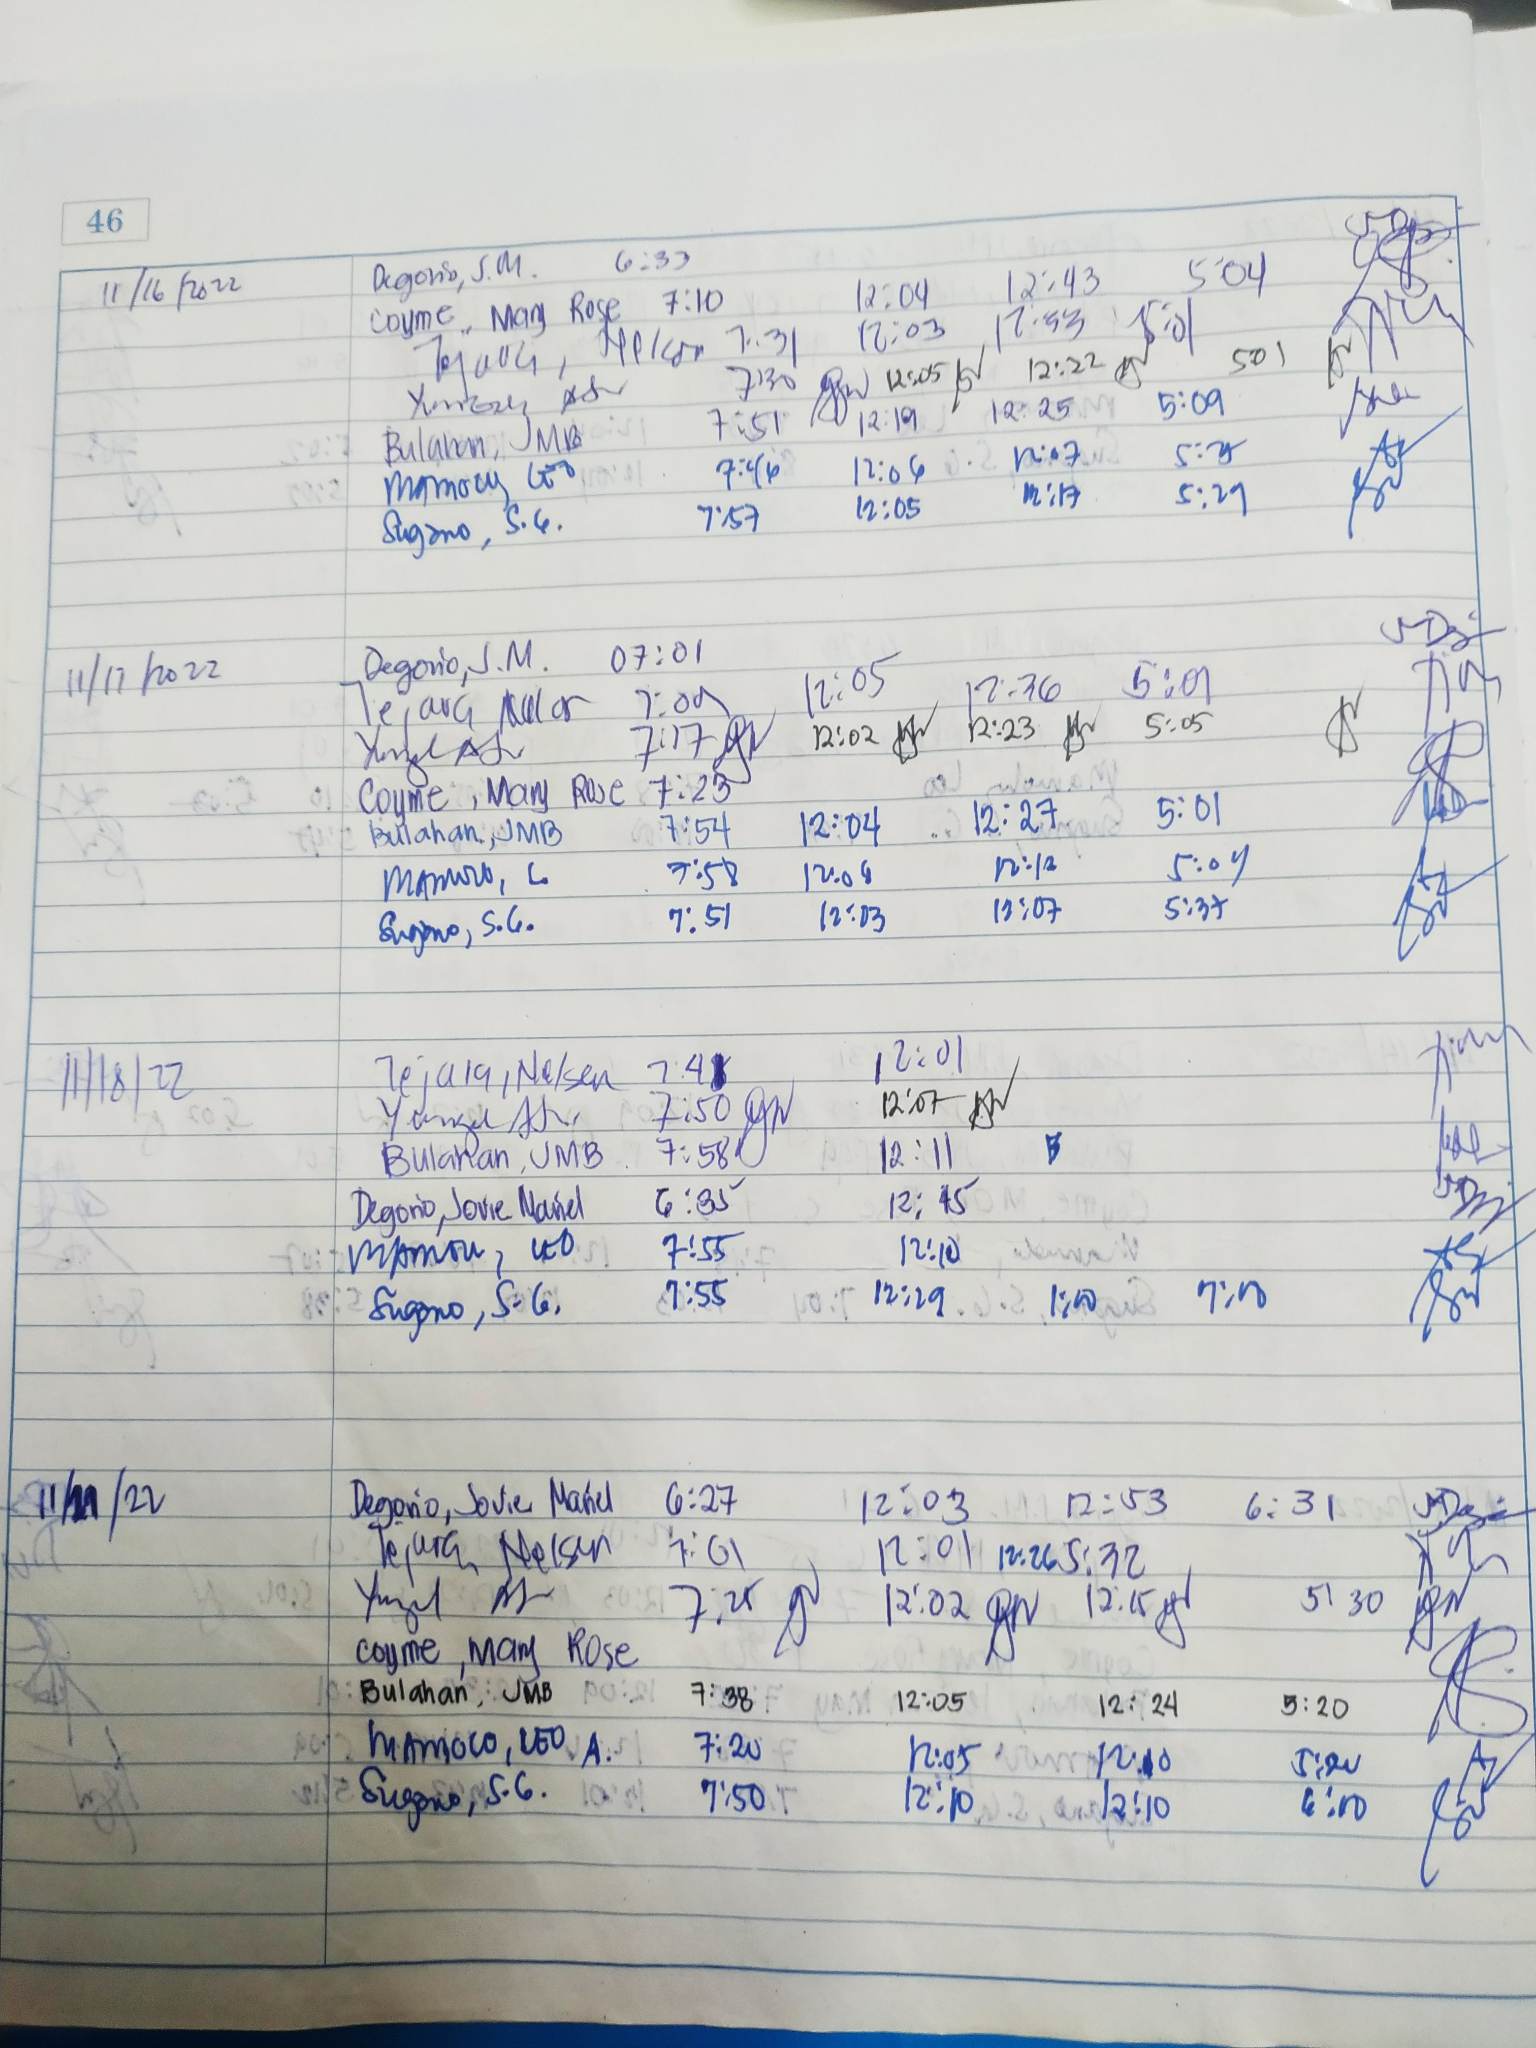 46
11/16/2022 Degorio, J.M. 6:33
Coyme, Mary Rose 7:10 12:04 12:43 5:04
Tejara, Nelson 7:31 12:03 12:53 5:01
7:30 12:05 12:22 501
Bulahan, JMB 7:51 12:19 12:25 5:09
Mamoco, LEO 7:46 12:06 12:07
Sugano, S.G. 7:57 12:05 12:17 5:29
11/17/2022 Degorio, J.M. 07:01
Tejara 7:09 12:05 12:36 5:01
7:17 12:02 12:23 5:05
Coyme, Mary Rose 7:23
Bulahan, JMB 7:54 12:04 12:27 5:01
Mamoco, L 7:58 12:08 12:12 5:04
Sugano, S.G. 7:51 12:03 12:07 5:37
11/18/22 Tejara, Nelsen 12:01
7:50 12:07
Bulahan, JMB 7:58 12:11
Degorio, Jovie Mariel 6:35 12:45
Mamoco, LEO 7:55 12:10
Sugano, S.G. 7:55 12:29 1:10 7:10
11/21/22 Degorio, Jovie Mariel 6:27 12:03 12:53 6:31
Tejara, Nelsen 7:01 12:01 12:26 5:32
7:25 12:02 12:15 5:30
Coyme, Mary Rose
Bulahan, JMB 7:38 12:05 12:24 5:20
Mamoco, LEO A. 7:20 12:05 12:10 5:20
Sugano, S.G. 7:50 12:10 12:10 6:10